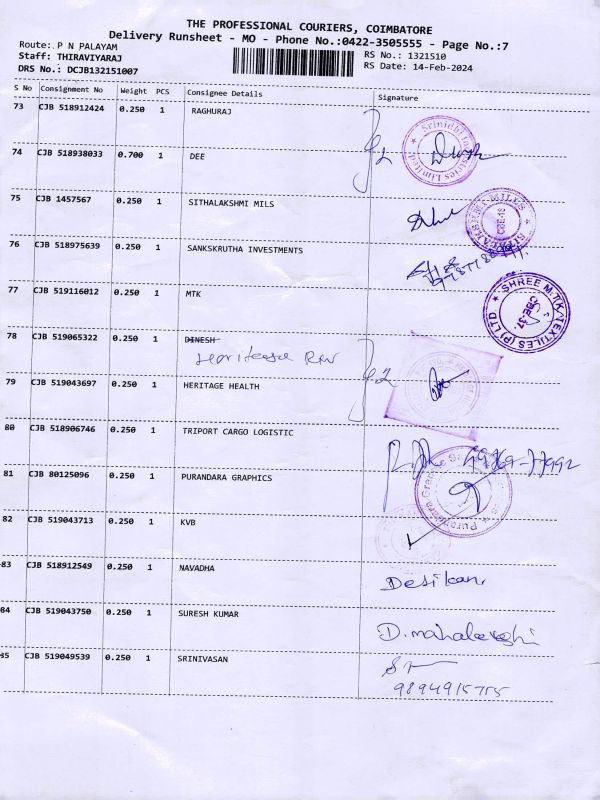 THE PROFESSIONAL COURIERS, COIMBATORE
Delivery Runsheet - MO - Phone No.:0422-3505555 - Page No.:7
Route: P N PALAYAM
Staff: THIRAVIYARAJ
DRS No.: DCJB132151007
RS No.: 1321510
RS Date: 14-Feb-2024
S No Consignment No Weight PCS Consignee Details Signature
73 CJB 518912424 0.250 1 RAGHURAJ
Srinidhi Industries Limited
74 CJB 518938033 0.700 1 DEE
75 CJB 1457567 0.250 1 SITHALAKSHMI MILS
76 CJB 518975639 0.250 1 SANKSKRUTHA INVESTMENTS
77 CJB 519116012 0.250 1 MTK
SHREE M.T.K TEXTILES (P) LTD
CBE-37.
78 CJB 519065322 0.250 1 DINESH
Heritage
79 CJB 519043697 0.250 1 HERITAGE HEALTH
80 CJB 518906746 0.250 1 TRIPORT CARGO LOGISTIC
81 CJB 80125096 0.250 1 PURANDARA GRAPHICS
82 CJB 519043713 0.250 1 KVB
83 CJB 518912549 0.250 1 NAVADHA
Desikan
84 CJB 519043750 0.250 1 SURESH KUMAR
85 CJB 519049539 0.250 1 SRINIVASAN